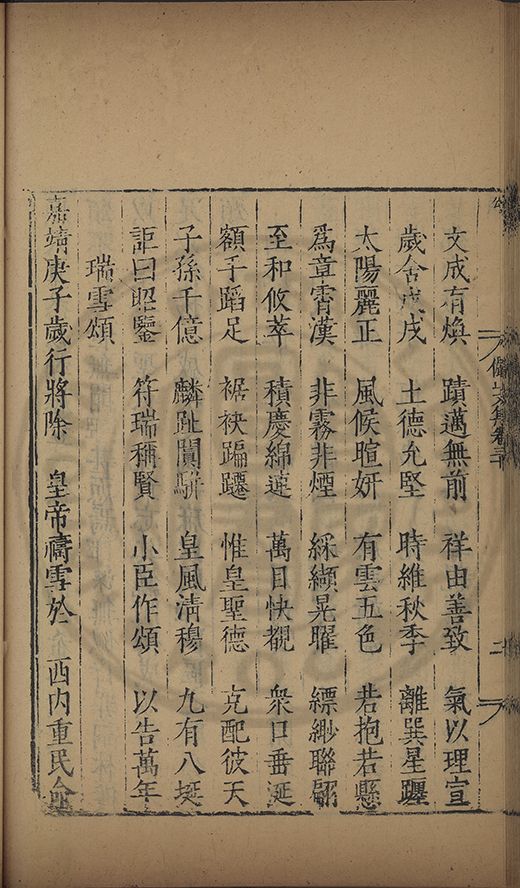 文成有煥　蹟邁無前　祥由善致　氣以理宣
歲舍戊戌　土德允堅　時維秋季　離巽星躔
太陽麗正　風候暄妍　有雲五色　若抱若懸
爲章霄漢　非霧非煙　綵纈晃曜　縹緲聯翩
至和攸萃　積慶綿連　萬目快覩　衆口垂涎
額手蹈足　裾袂蹁躚　惟皇聖德　克配彼天
子孫千億　麟趾闐駢　皇風清穆　九有八埏
詎曰昭鑒　符瑞稱賢　小臣作頌　以告萬年
瑞雪頌
嘉靖庚子歲行將除　皇帝禱雪於　西内重民命
文集卷三十
二